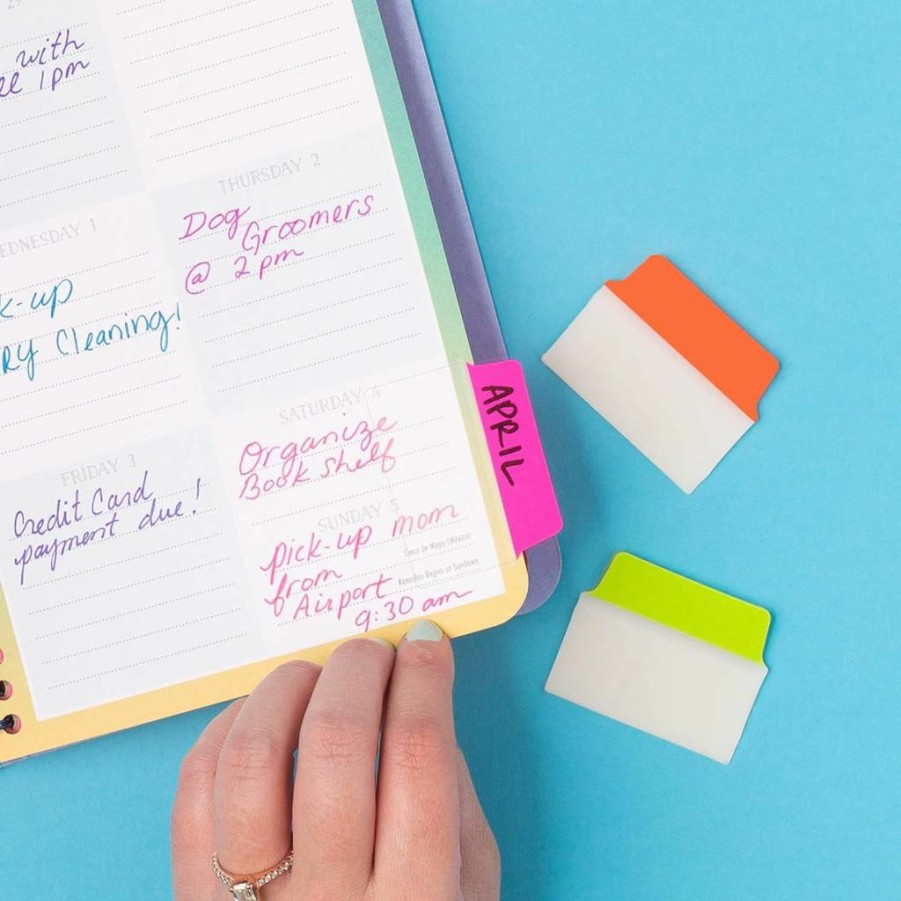 29
with
1pm
THURSDAY 2
Dog
Groomers
@ 2pm
EDNESDAY 1
k-up
RY Cleaning!
SATURDAY 4
Organize
Book Shelf
APRIL
FRIDAY 3
Credit Card
payment due!
SUNDAY 5
pick-up mom
from
Airport
9:30 am
Cinco de Mayo (Mexico)
Ramadan Begins at Sundown